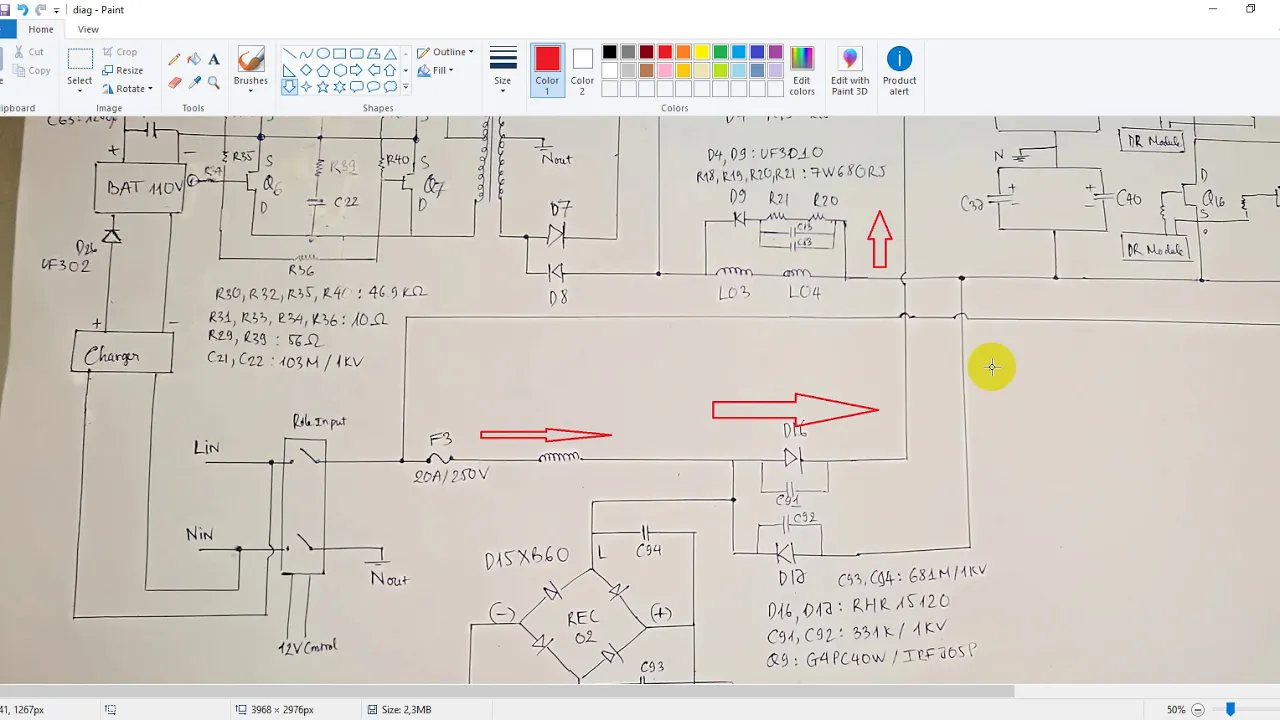 diag - Paint
Home View
Cut
Copy
Select
Crop
Resize
Rotate
Image
Brushes
Tools
Shapes
Outline
Fill
Size
Color
1
Color
2
Colors
Edit
colors
Edit with
Paint 3D
Product
alert
R35
S
R39
R40
S
Nout
D4, D9: UF3010
R18, R19, R20, R21: 7W680RJ
N
DR Module
BAT 110V
R34
Q6
D
C22
Q7
D
D9 R21 R20
C13
C63
C32
C40
D
Q16
S
DR Module
D26
UF302
D7
R36
D8
L03
L04
R30, R32, R35, R40: 46.9KΩ
R31, R33, R34, R36: 10Ω
R29, R39: 56Ω
C21, C22: 103M/1KV
Charger
Role Input
Lin
F3
20A/250V
D16
C91
C92
Nin
Nout
12V Control
D15XB60
L
C94
D17
C93, C94: 681M/1KV
D16, D17: RHR15120
C91, C92: 331K/1KV
Q9: G4PC40W/IRFJ05P
(-)
REC
02
(+)
C93
41, 1267px
3968 × 2976px
Size: 2,3MB
50%